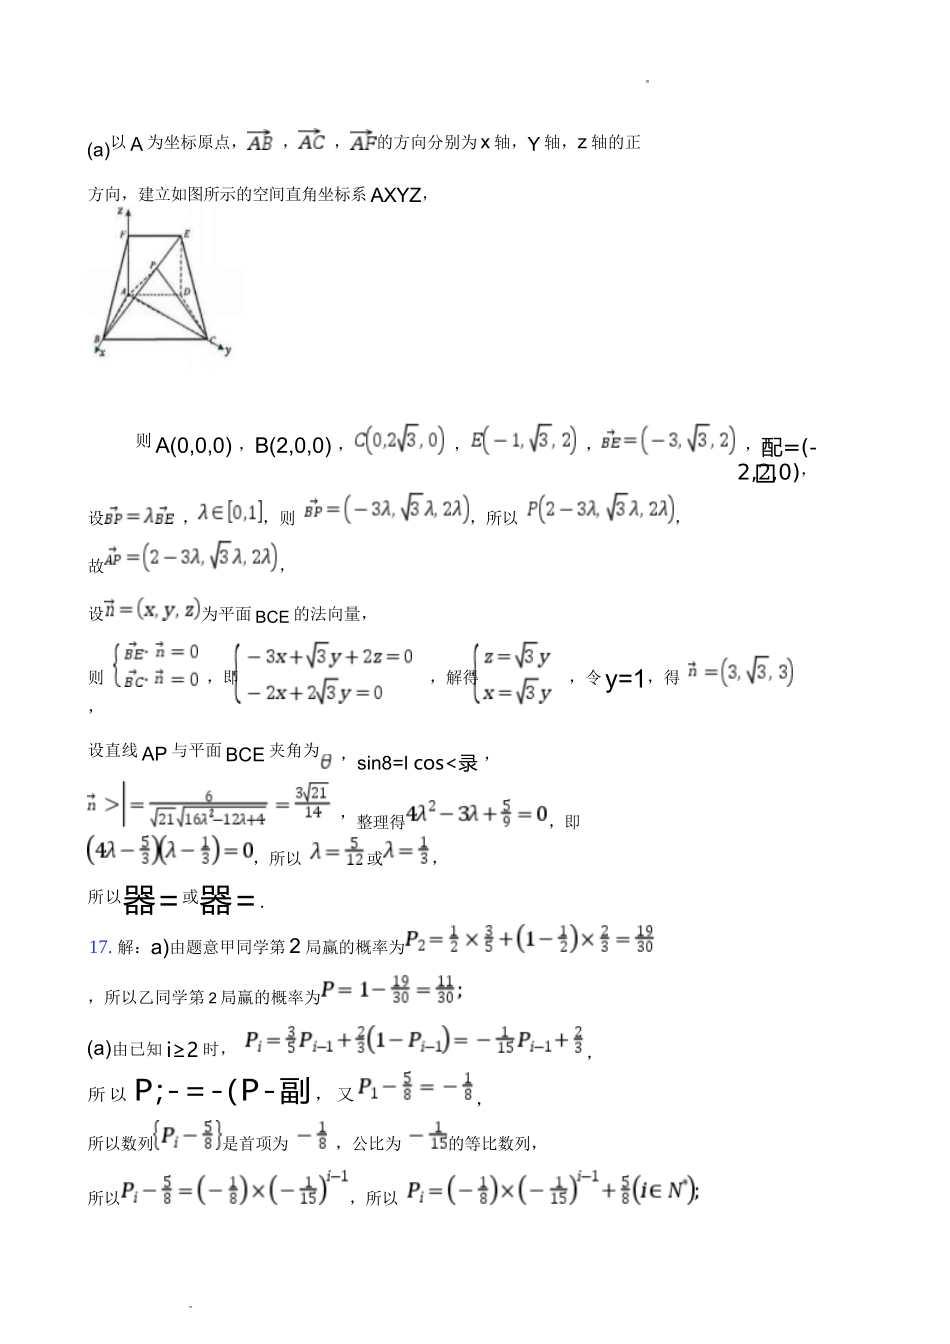 (a)以 A 为坐标原点，$\overrightarrow{AB}$，$\overrightarrow{AC}$，$\overrightarrow{AF}$的方向分别为 x 轴，Y 轴，z 轴的正
方向，建立如图所示的空间直角坐标系 AXYZ，
z
F E
P
A D
B C
x y
则 A(0,0,0)，B(2,0,0)，$C(0,2\sqrt{3},0)$，$E(-1,\sqrt{3},2)$，$\vec{BE}=(-3,\sqrt{3},2)$，配=(-
2,2口,0)，
设$\vec{BP}=\lambda\vec{BE}$，$\lambda\in[0,1]$，则 $\vec{BP}=(-3\lambda,\sqrt{3}\lambda,2\lambda)$，所以 $P(2-3\lambda,\sqrt{3}\lambda,2\lambda)$，
故$\vec{AP}=(2-3\lambda,\sqrt{3}\lambda,2\lambda)$，
设$\vec{n}=(x,y,z)$为平面 BCE 的法向量，
则 $\begin{cases}\vec{BE}\cdot\vec{n}=0\\\vec{BC}\cdot\vec{n}=0\end{cases}$，即$\begin{cases}-3x+\sqrt{3}y+2z=0\\-2x+2\sqrt{3}y=0\end{cases}$，解得$\begin{cases}z=\sqrt{3}y\\x=\sqrt{3}y\end{cases}$，令 y=1，得 $\vec{n}=(3,\sqrt{3},3)$
，
设直线 AP 与平面 BCE 夹角为$\theta$，sin8=l cos<录，
$\vec{n}>|=\frac{6}{\sqrt{21}\sqrt{16\lambda^2-12\lambda+4}}=\frac{3\sqrt{21}}{14}$，整理得$4\lambda^2-3\lambda+\frac{5}{9}=0$，即
$(4\lambda-\frac{5}{3})(\lambda-\frac{1}{3})=0$，所以 $\lambda=\frac{5}{12}$或$\lambda=\frac{1}{3}$，
所以器=或器=.
17. 解：a)由题意甲同学第 2 局赢的概率为$P_2=\frac{1}{2}\times\frac{3}{5}+(1-\frac{1}{2})\times\frac{2}{3}=\frac{19}{30}$
，所以乙同学第 2 局赢的概率为$P=1-\frac{19}{30}=\frac{11}{30}$;
(a)由已知 i≥2 时，$P_i=\frac{3}{5}P_{i-1}+\frac{2}{3}(1-P_{i-1})=-\frac{1}{15}P_{i-1}+\frac{2}{3}$，
所 以 P;-=-(P-副，又$P_1-\frac{5}{8}=-\frac{1}{8}$，
所以数列$\{P_i-\frac{5}{8}\}$是首项为 $-\frac{1}{8}$，公比为 $-\frac{1}{15}$的等比数列，
所以$P_i-\frac{5}{8}=(-\frac{1}{8})\times(-\frac{1}{15})^{i-1}$，所以 $P_i=(-\frac{1}{8})\times(-\frac{1}{15})^{i-1}+\frac{5}{8}(i\in N^*)$;